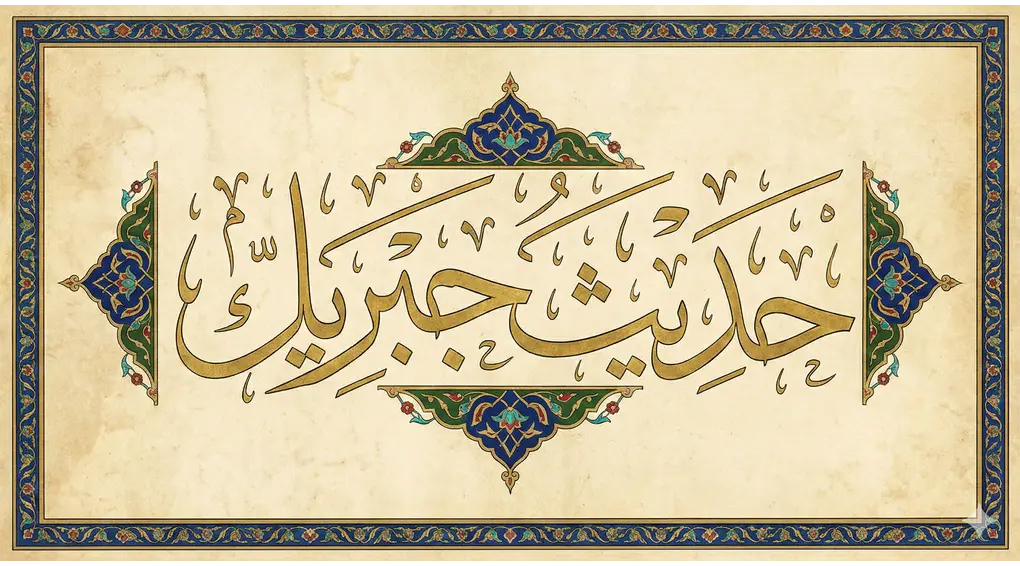 حديث جبريل